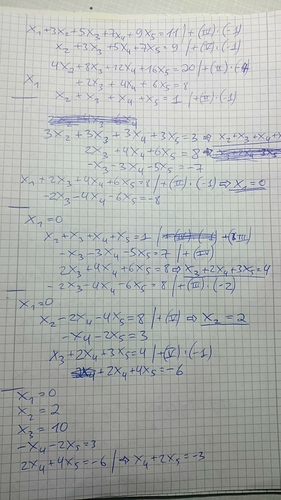 x₁+3x₂+5x₃+7x₄+9x₅=11 |+(IV)·(-1)
x₂+3x₃+5x₄+7x₅=9 |+(IV)·(-1)
4x₂+8x₃+12x₄+16x₅=20 |+(II)·(-4)
x₁ +2x₃+4x₄+6x₅=8
x₂+x₃+x₄+x₅=1 |+(II)·(-1)
3x₂+3x₃+3x₄+3x₅=3 ⇒ x₂+x₃+x₄+x
2x₃+4x₄+6x₅=8
-x₃-3x₄-5x₅=-7
x₁+2x₃+4x₄+6x₅=8 |+(III)·(-1) ⇒ x₁=0
-2x₃-4x₄-6x₅=-8
x₁=0
x₂+x₃+x₄+x₅=1 | +(III)
-x₃-3x₄-5x₅=7 |+(IV)
2x₃+4x₄+6x₅=8 ⇒ x₃+2x₄+3x₅=4
-2x₃-4x₄-6x₅=8 |+(III)·(-2)
x₁=0
x₂-2x₄-4x₅=8 |+(V) ⇒ x₂=2
-x₄-2x₅=3
x₃+2x₄+3x₅=4 |+(V)·(-1)
2x₄+4x₅=-6
x₁=0
x₂=2
x₃=10
-x₄-2x₅=3
2x₄+4x₅=-6 |⇒ x₄+2x₅=-3